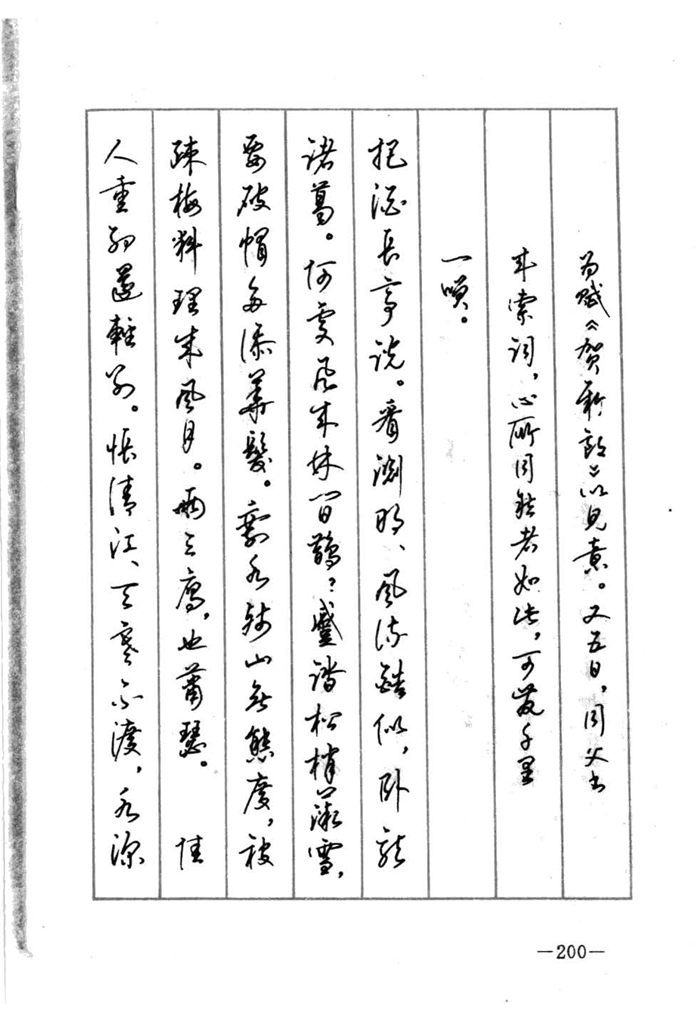 为赋《贺新郎》以见意。又五日，同父书
来索词，心所同然者如此，可发千里
一笑。
把酒长亭说。看渊明、风流酷似，卧龙
诸葛。何处飞来林间鹊？蹙踏松梢微雪，
要破帽多添华发。剩水残山无态度，被
疏梅料理成风月。两三雁，也萧瑟。 佳
人重约还轻别。怅清江、天寒不渡，水深
—200—